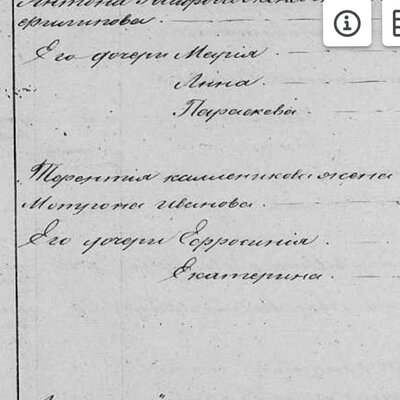 филипова.
Его дочери Марія.
Анна.
Параскева.
Терентія каллеников. жена
Мотрона Иванова.
Его дочери Ефросинія.
Екатерина.